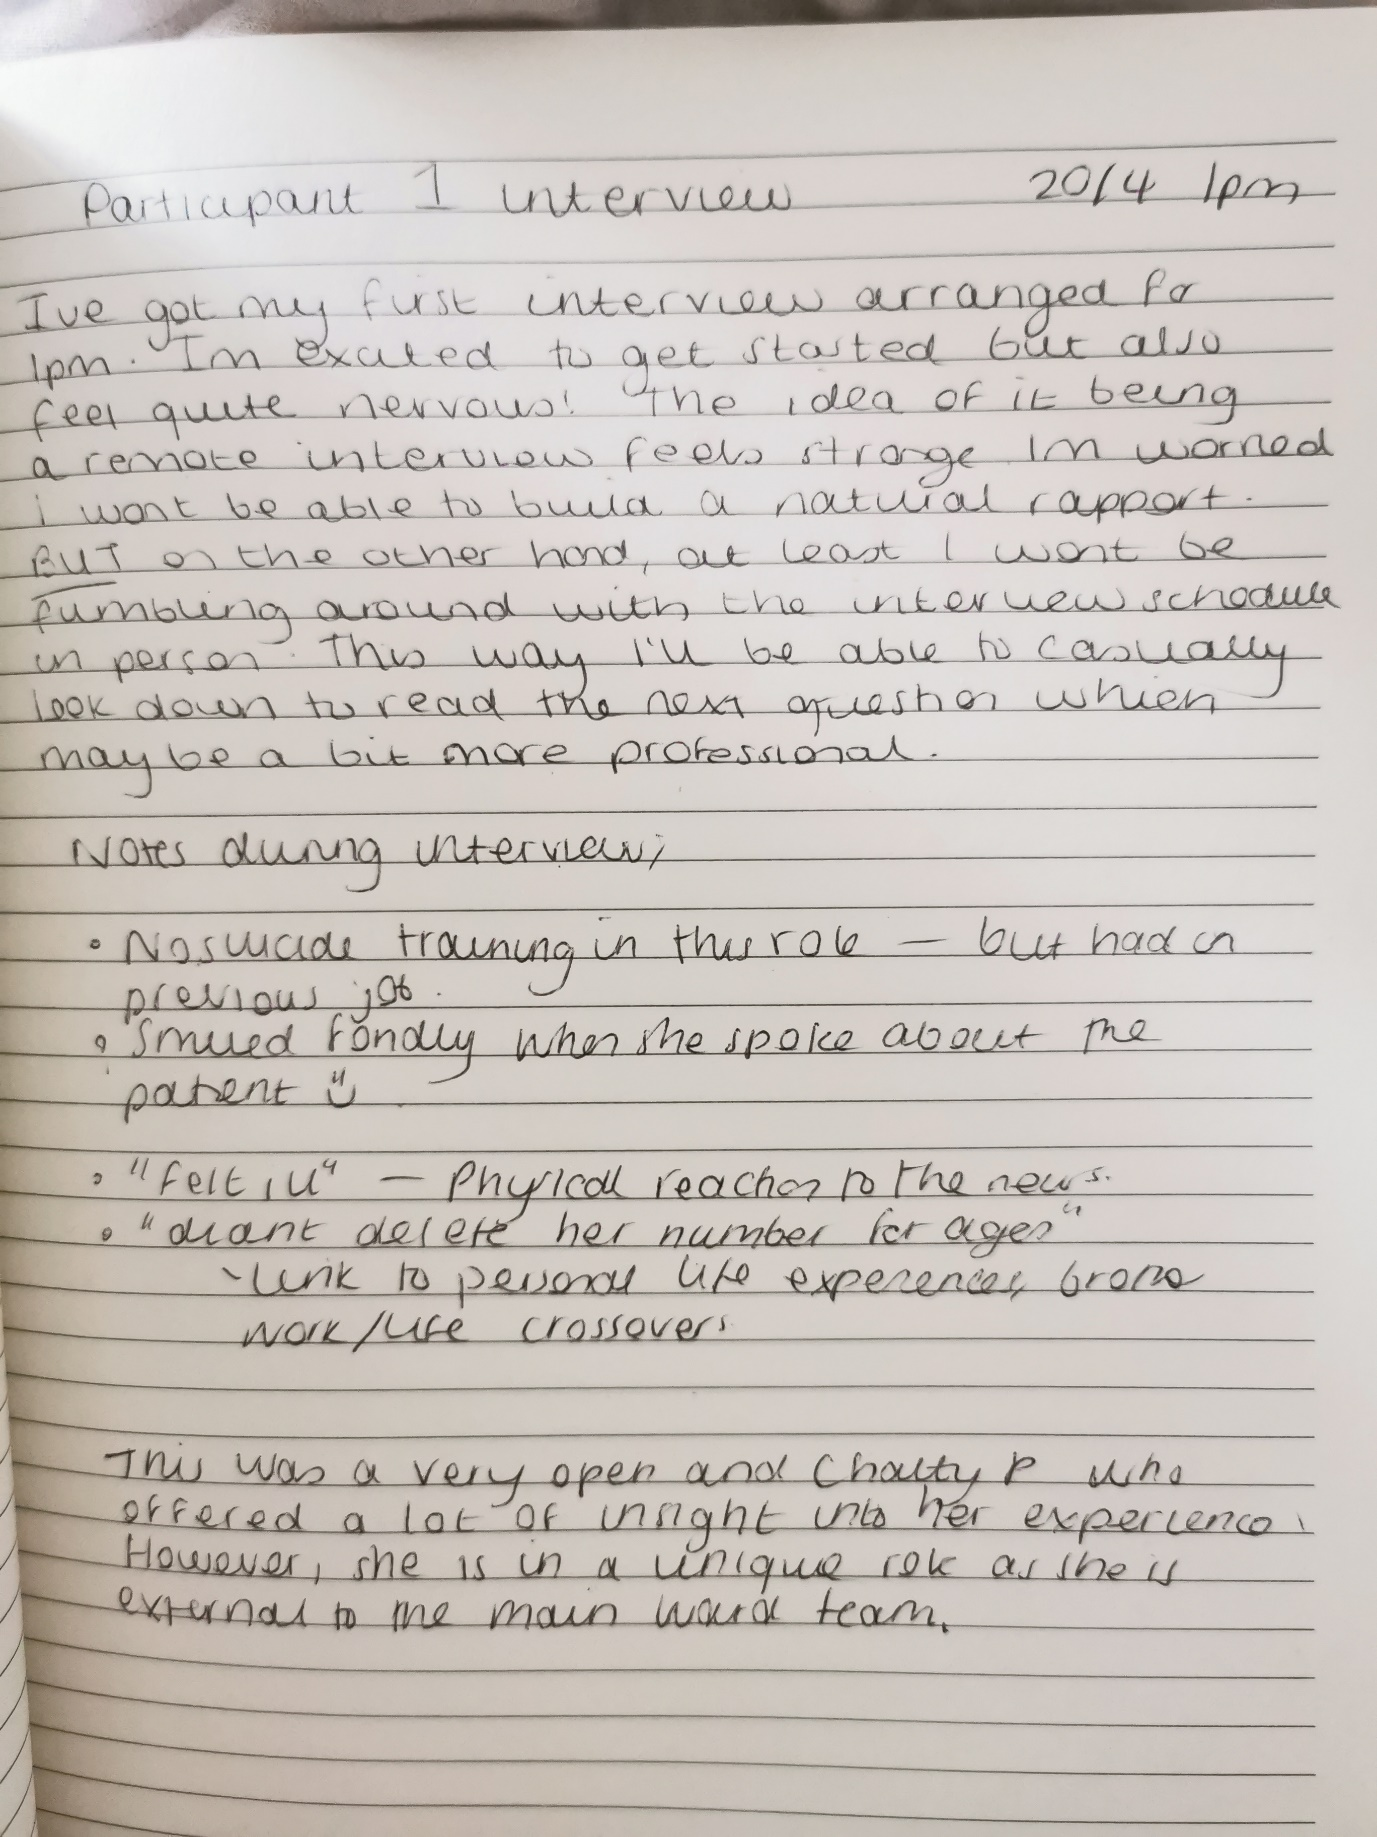 Participant 1 interview 20/4 1pm
Ive got my first interview arranged for
1pm. Im excited to get started but also
feel quite nervous! The idea of it being
a remote interview feels strange Im worried
i wont be able to build a natural rapport.
BUT on the other hand, at least I wont be
fumbling around with the interview schedule
in person. This way I'll be able to casually
look down to read the next question which
may be a bit more professional.
Notes during interview;
• No suicide training in this role – but had in
previous job.
• Smiled fondly when she spoke about the
patient
• "felt ill" – Physical reaction to the news.
• "didnt delete her number for ages"
- link to personal life experiences,
work/life crossovers
This was a very open and chatty P who
offered a lot of insight into her experience.
However, she is in a unique role as she is
external to the main ward team.